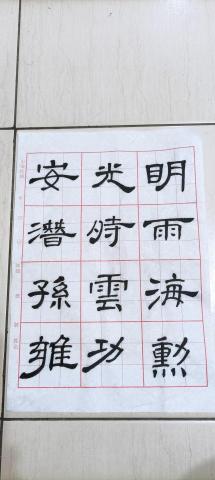 明雨海勳
光時雲功
安潛孫